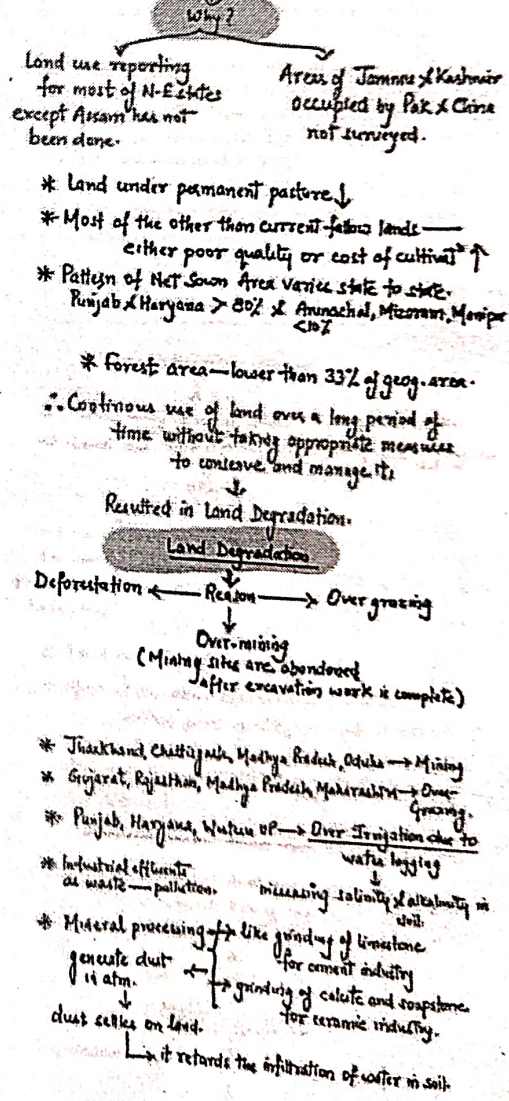 Why?
Land use reporting
for most of N-E states
except Assam has not
been done.
Areas of Jammu & Kashmir
occupied by Pak & China
not surveyed.
* Land under permanent pasture ↓
* Most of the other than current fallow lands —
either poor quality or cost of cultivatn ↑
* Pattern of Net Sown Area varies state to state.
Punjab & Haryana > 80% & Arunachal, Mizoram, Manipur
<10%
* Forest area — lower than 33% of geog. area.
∴ Continous use of land over a long period of
time without taking appropriate measures
to conserve and manage it,
↓
Resulted in Land Degradation.
Land Degradation
↓
Deforestation ← Reason → Over grazing
↓
Over-mining
(Mining sites are abandoned
after excavation work is complete)
* Jharkhand, Chattisgarh, Madhya Pradesh, Odisha → Mining
* Gujarat, Rajasthan, Madhya Pradesh, Maharashtra → Over-
Grazing.
* Punjab, Haryana, Western UP → Over Irrigation due to
water logging
↓
increasing salinity & alkalinity in
soil.
* Industrial effluents
as waste — pollution.
* Mineral processing → like grinding of limestone
for cement industry
→ grinding of calcite and soapstone
for ceramic industry.
generate dust ←
in atm.
↓
dust settles on land.
↳ it retards the infiltration of water in soil.